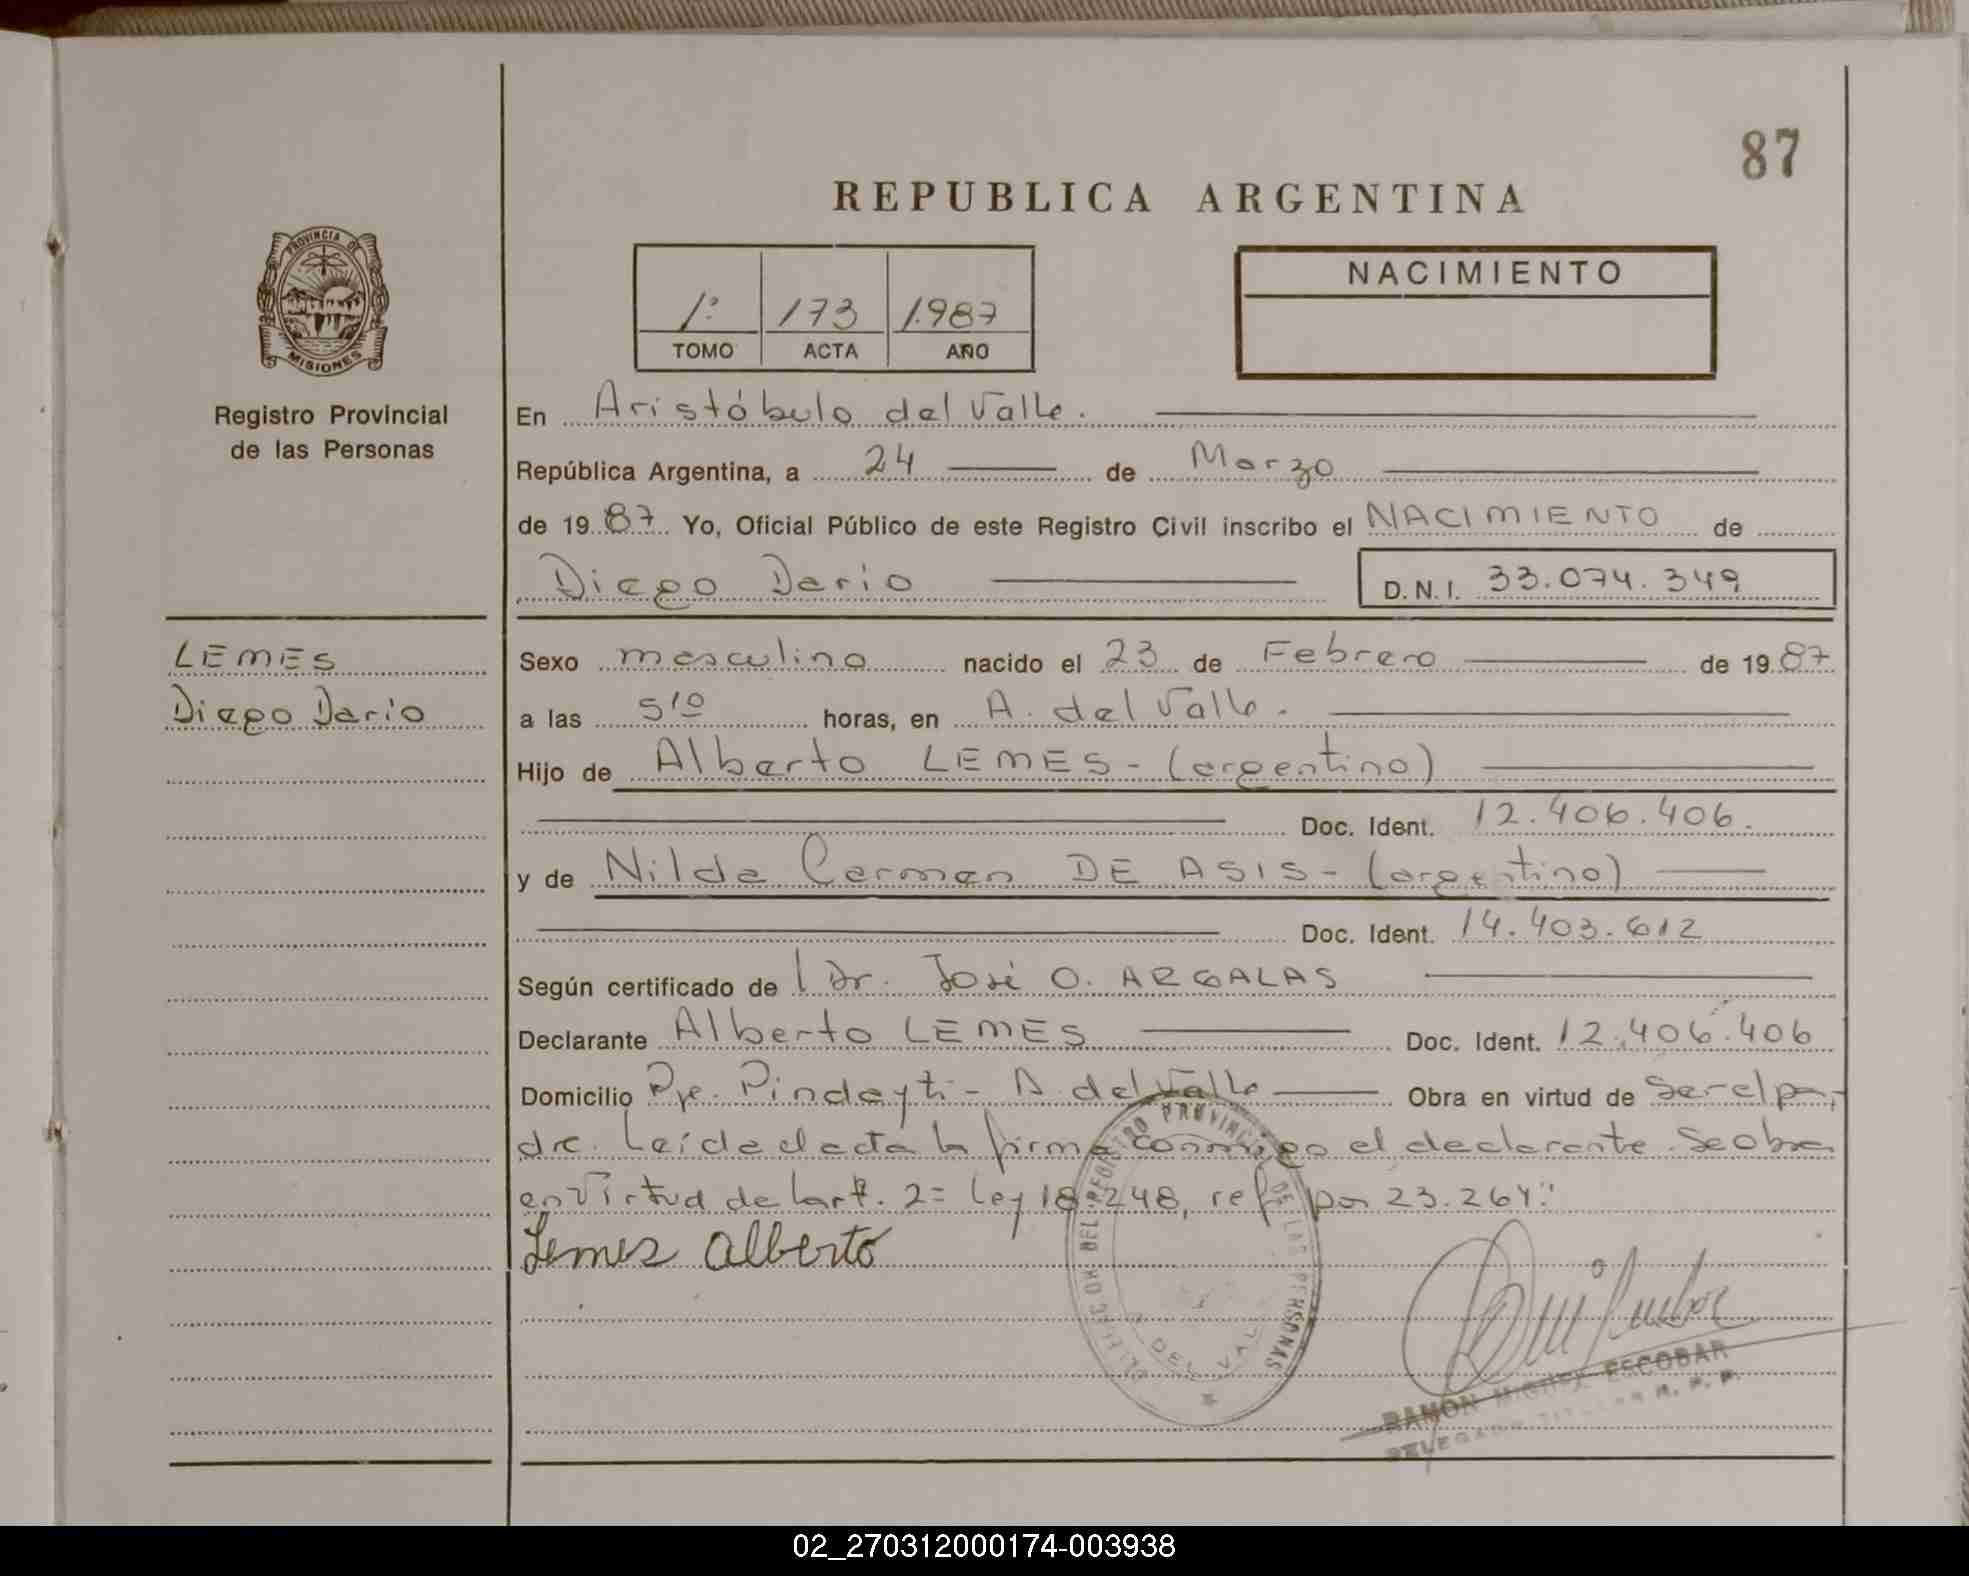 87
REPUBLICA ARGENTINA
PROVINCIA DE
MISIONES
Registro Provincial
de las Personas
1º 173 1.987
TOMO ACTA AÑO
NACIMIENTO
En Aristóbulo del Valle.
República Argentina, a 24 de Marzo
de 1987 Yo, Oficial Público de este Registro Civil inscribo el NACIMIENTO de
Diego Dario D.N.I. 33.074.349
LEMES
Diego Dario
Sexo masculino nacido el 23 de Febrero de 1987
a las 5'10 horas, en A. del Valle.
Hijo de Alberto LEMES - (argentino)
Doc. Ident. 12.406.406.
y de Nilda Carmen DE ASIS - (argentino)
Doc. Ident. 14.403.612
Según certificado de Dr. José O. ARGALAS
Declarante Alberto LEMES Doc. Ident. 12.406.406
Domicilio Pje. Pindayti - A. del Valle Obra en virtud de ser el pa-
dre. Leída el acta la firma conmigo el declarante. Se obra
en virtud de l art. 2= Ley 18.248, ref por 23.264."
Lemes Alberto
DEL REGISTRO PROVINCIAL DE LAS PERSONAS
DEL VAL
RAMON MIGUEL ESCOBAR
DELEGADO TITULAR R. P. P.
02_270312000174-003938